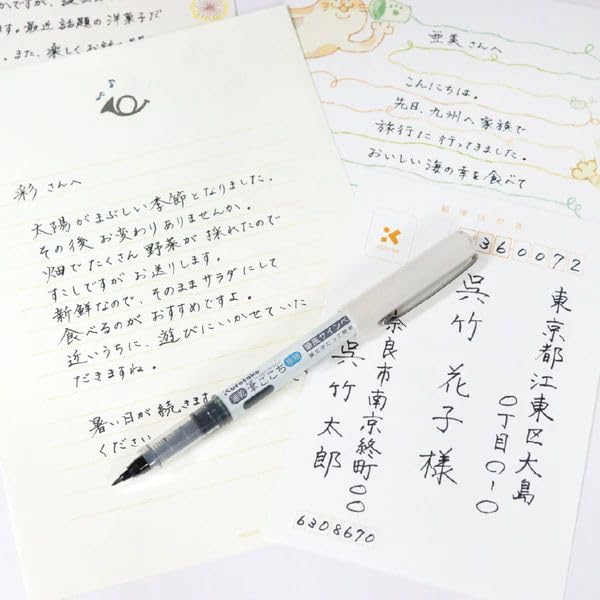 す。最近 話題の 洋菓子だ
また、楽しくお話
彩 さんへ
太陽がまぶしい季節となりました。
その後 お変わりありませんか。
畑でたくさん 野菜が 採れたので
すこしですが お送りします。
新鮮なので、そのままサラダにして
食べるのが おすすめですよ。
近いうちに、遊びにいかせていた
だきますね。
暑い日が 続きます
ください
亜美 さんへ
こんにちは。
先日、九州へ 家族で
旅行に 行ってきました。
おいしい 海の幸を食べて
郵便はがき
360072
東京都江東区大島
〇丁目〇-〇
呉竹 花子 様
奈良市南京終町〇〇
呉竹 太郎
6308670
Kuretake
筆ごこち
筆風サインペン